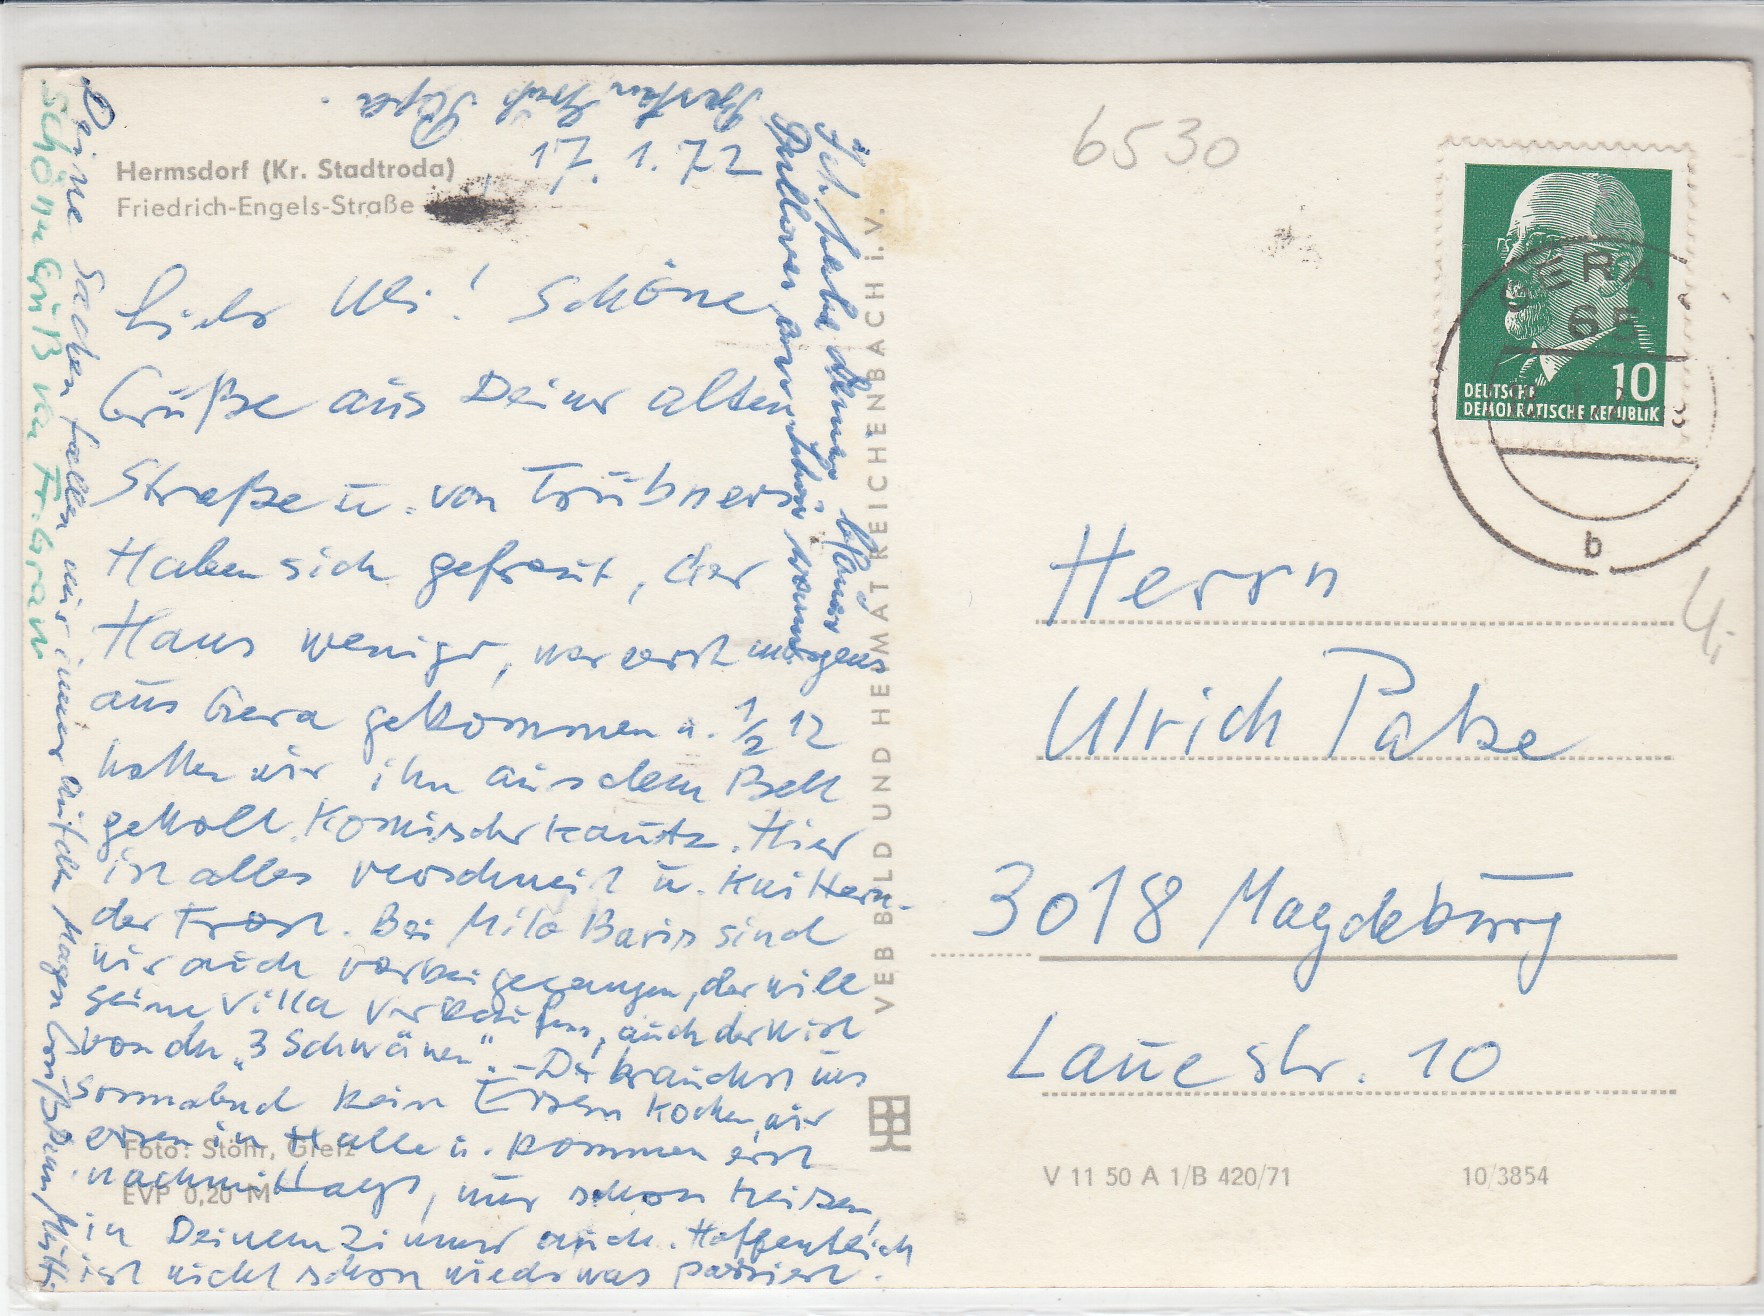 Hermsdorf (Kr. Stadtroda)
Friedrich-Engels-Straße
17. 1. 72
Besten Gruß Papa.
Lieber Uli! Schöne
Grüße aus Deiner alten
Straße u. von Trübners.
Haben sich gefreut, der
Haus weniger, war erst morgens
aus Gera gekommen u. 1/2 12
hatten wir ihn aus dem Bett
geholt. Komischer Kautz. Hier
ist alles verschneit u. knittern-
der Frost. Bei Milo Baris sind
wir auch vorbei gegangen, der will
seine Villa verkaufen, auch der Wirt
von den „3 Schwänen". – Du brauchst uns
Sonnabend kein Essen kochen, wir
essen in Halle u. kommen erst
nachmittags, nur schon heizen,
in Deinem Zimmer auch. Hoffentlich
ist nicht schon wieder was passiert.
Ich habe Deinen
Pullover an, schön warm
Deine Sachen fallen mir immer auf den Magen Grüßchen Mutti
Schönen Gruß von Fr. Gran
Foto: Stöhr, Greiz
EVP 0,20 M
VEB BILD UND HEIMAT REICHENBACH i. V.
6530
DEUTSCHE
DEMOKRATISCHE REPUBLIK
10
GERA
65
b
Uli
Herrn
Ulrich Patze
3018 Magdeburg
Lauestr. 10
V 11 50 A 1/B 420/71
10/3854